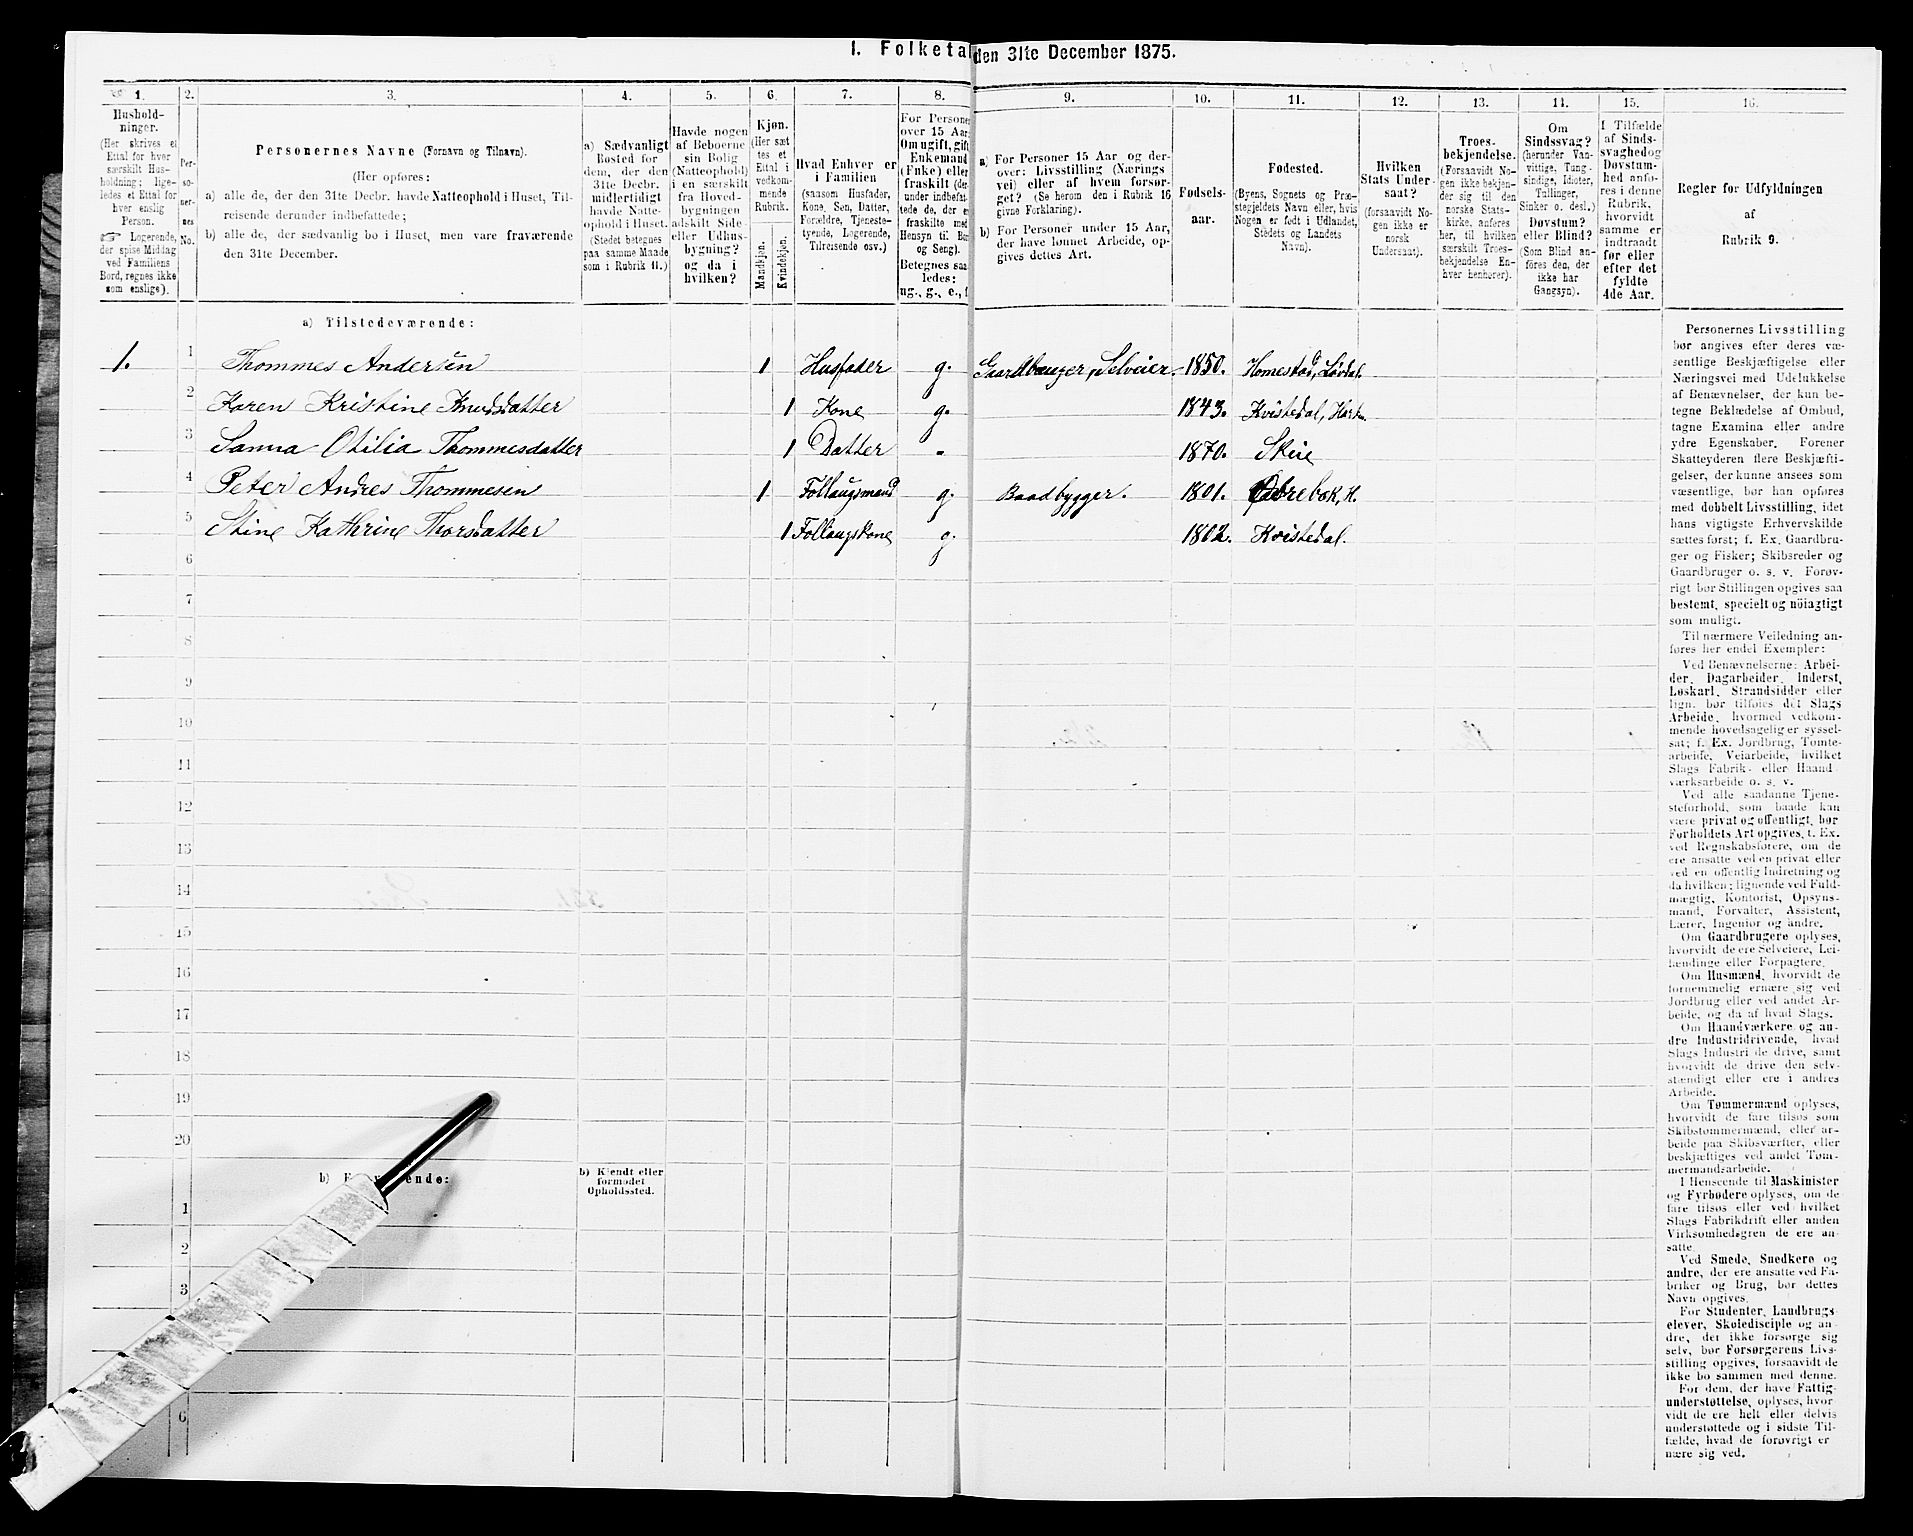 I. Folketal den 31te December 1875.
1. 2. 3. 4. 5. 6. 7. 8. 9. 10. 11. 12. 13. 14. 15. 16.
Hushold-
ninger.
(Her skrives et
Ettal for hver
særskilt Hus-
holdning; lige-
ledes et Ettal for
hver enslig
Person.
☞ Logerende,
der spise Middag
ved Familiens
Bord, regnes ikke
som enslige).
Per-
so-
ner-
nes
No.
Personernes Navne (Fornavn og Tilnavn).
(Her opføres:
a) alle de, der den 31te Decbr. havde Natteophold i Huset, Til-
reisende derunder indbefattede;
b) alle de, der sædvanlig bo i Huset, men vare fraværende
den 31te December.
a) Sædvanligt
Bosted for
dem, der den
31te Decbr.
midlertidigt
havde Natte-
ophold i Huset.
(Stedet betegnes
paa samme Maade
som i Rubrik 11.)
Havde nogen
af Beboerne
sin Bolig
(Natteophold)
i en særskilt
fra Hoved-
bygningen
adskilt Side-
eller Udhus-
bygning?
og da i
hvilken?
Kjøn.
(Her sæt
tes et
Ettal i
vedkom-
mende
Rubrik.
Mandkjøn.
Kvindekjøn.
Hvad Enhver er
i Familien
(saasom Husfader,
Kone, Søn, Datter,
Forældre, Tjeneste-
tyende, Logerende,
Tilreisende osv.)
For Persone
over 15 Aar:
Om ugift, gift
Enkemand
(Enke) eller
fraskilt (der-
under indbefat-
tede de, der e
fraskilte med
Hensyn til Bo
og Seng).
Betegnes saa
ledes:
ug., g., e., f
a) For Personer 15 Aar og der-
over: Livsstilling (Nærings
vei) eller af hvem forsør-
get? (Se herom den i Rubrik 16
givne Forklaring).
b) For Personer under 15 Aar,
der have lønnet Arbeide, op-
gives dettes Art.
Fødsels-
aar.
Fødested.
(Byens, Sognets og Præ-
stegjeldets Navn eller, hvis
Nogen er født i Udlandet,
Stedets og Landets
Navn).
Hvilken
Stats Under-
saat?
(forsaavidt No-
gen ikke er
norsk
Undersaat).
Troes-
bekjendelse.
(Forsaavidt No-
gen ikke bekjen-
der sig til den
norske Stats-
kirke, anføres
her, til hvilken
særskilt Troes-
bekjendelse En-
hver henhører).
Om
Sindssvag?
(herunder Van-
vittige, Tung-
sindige, Idioter,
Tullinger,
Sinker o. desl.)
Døvstum?
eller Blind?
(Som Blind an-
føres den, der
ikke har
Gangsyn).
I Tilfælde
af Sinds-
svaghed og
Døvstum-
hed anfø-
res i denne
Rubrik,
hvorvidt
samme er
indtraadt
før eller
efter det
fyldte
4de Aar.
Regler for Udfyldningen
af
Rubrik 9.
a) Tilstedeværende:
1. 1 Thommes Andersen 1 Husfader g. Gaardbruger, Selveier. 1850. Homestad, Løvdal.
2 Karen Kristine Knudsdatter 1 Kone g. 1843. Kvistedal,
3 Sanna Otilia Thommesdatter 1 Datter „ 1870. Skeie
4 Peter Andres Thommesen 1 Follaugsmand g. Baadbygger. 1801. H.
5 Stine Kathrine Thorsdatter 1 Follaugskone g. 1802. Kvistedal.
6
7
8
9
10
11
12
13
14
15
16
17
18
19
20
b) F
ende:
b) Kjendt eller
formodet
Opholdssted.
1
2
3
6
Personernes Livsstilling
bør angives efter deres væ-
sentlige Beskjæftigelse eller
Næringsvei med Udelukkelse
af Benævnelser, der kun be-
tegne Beklædelse af Ombud,
tagne Examina eller andre
ydre Egenskaber. Forener
Skatteyderen flere Beskjæfti-
gelser, der kunne ansees som
væsentlige, bør han opføres
med dobbelt Livsstilling, idet
hans vigtigste Erhvervskilde
sættes først; f. Ex. Gaardbru-
ger og Fisker; Skibsreder og
Gaardbruger o. s. v. Forøv-
rigt bør Stillingen opgives saa
bestemt, specielt og nöiagtigt
som muligt.
Til nærmere Veiledning an-
føres her endel Exempler:
Ved Benævnelserne: Arbei-
der, Dagarbeider, Inderst,
Løskarl, Strandsidder eller
lign. bør tilføies det Slags
Arbeide, hvormed vedkom-
mende hovedsagelig er syssel-
sat; f. Ex. Jordbrug, Tomte-
arbeide, Veiarbeide, hvilket
Slags Fabrik- eller Haand
værksarbeide o. s. v.
Ved alle saadanne Tjene-
steforhold, som baade kan
være privat og offentligt, bør
Forholdets Art opgives, t. Ex.
ved Regnskabsførere, om de
ere ansatte ved en privat eller
ved en offentlig Indretning og
da hvilken; lignende ved Fuld-
mægtig, Kontorist, Opsyns-
mand, Forvalter, Assistent,
Lærer, Ingeniør og andre.
Om Gaardbrugere oplyses,
hvorvidt de ere Selveiere, Lei-
lændinge eller Forpagtere.
Om Husmænd, hvorvidt de
fornemmelig ernære sig ved
Jordbrug eller ved andet Ar-
beide, og da af hvad Slags.
Om Haandværkere og an-
dre Industridrivende, hvad
Slags Industri de drive, samt
hvorvidt de drive den selv-
stændigt eller ere i andres
Arbeide.
Om Tømmermænd oplyses,
hvorvidt de fare tilsøs som
Skibstømmermænd, eller ar-
beide paa Skibsværfter, eller
beskjæftiges ved andet Tøm-
mermandsarbeide.
I Henseende til Maskinister
og Fyrbødere oplyses, om de
fare tilsøs eller ved hvilket
Slags Fabrikdrift eller anden
Virksomhedsgren de ere an-
satte.
Ved Smede, Snedkere og
andre, der ere ansatte ved Fa-
briker og Brug, bør dettes
Navn opgives.
For Studenter, Landbrugs-
elever, Skoledisciple og an-
dre, der ikke forsørge sig
selv, bør Forsørgerens Livs-
stilling opgives, forsaavidt de
ikke bo sammen med denne.
For dem, der have Fattig-
understøttelse, oplyses, hvor-
vidt de ere helt eller delvis
understøttede og i sidste Til-
fælde, hvad de forøvrigt er
nære sig ved.